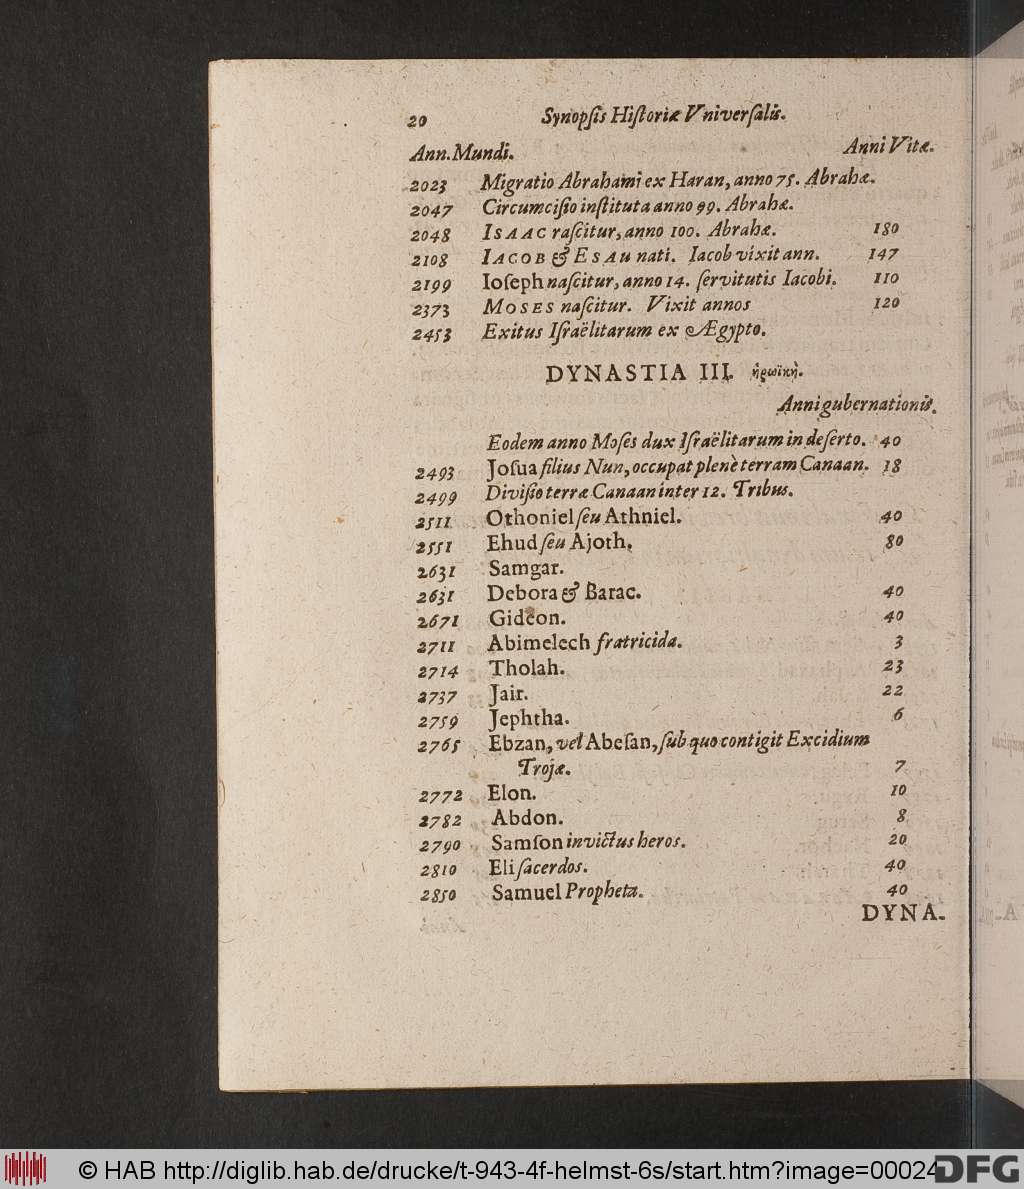 20 Synopſis Hiſtoriæ Vniverſalis.
Ann. Mundi. Anni Vitæ.
2023 Migratio Abrahami ex Haran, anno 75. Abrahæ.
2047 Circumciſio inſtituta anno 99. Abrahæ.
2048 ISAAC naſcitur, anno 100. Abrahæ. 180
2108 IACOB & ESAU nati. Iacob vixit ann. 147
2199 Ioſeph naſcitur, anno 14. ſervitutis Iacobi. 110
2373 MOSES naſcitur. Vixit annos 120
2453 Exitus Iſraëlitarum ex Ægypto.
DYNASTIA III. ἡρωϊκὴ.
Anni gubernationis.
Eodem anno Moſes dux Iſraëlitarum in deſerto. 40
2493 Joſua filius Nun, occupat plenè terram Canaan. 18
2499 Diviſio terræ Canaan inter 12. Tribus.
2511 Othoniel ſeu Athniel. 40
2551 Ehud ſeu Ajoth. 80
2631 Samgar.
2631 Debora & Barac. 40
2671 Gideon. 40
2711 Abimelech fratricida. 3
2714 Tholah. 23
2737 Jair. 22
2759 Jephtha. 6
2765 Ebzan, vel Abeſan, ſub quo contigit Excidium
Trojæ. 7
2772 Elon. 10
2782 Abdon. 8
2790 Samſon invictus heros. 20
2810 Eli ſacerdos. 40
2850 Samuel Propheta. 40
DYNA-
© HAB http://diglib.hab.de/drucke/t-943-4f-helmst-6s/start.htm?image=00024
DFG